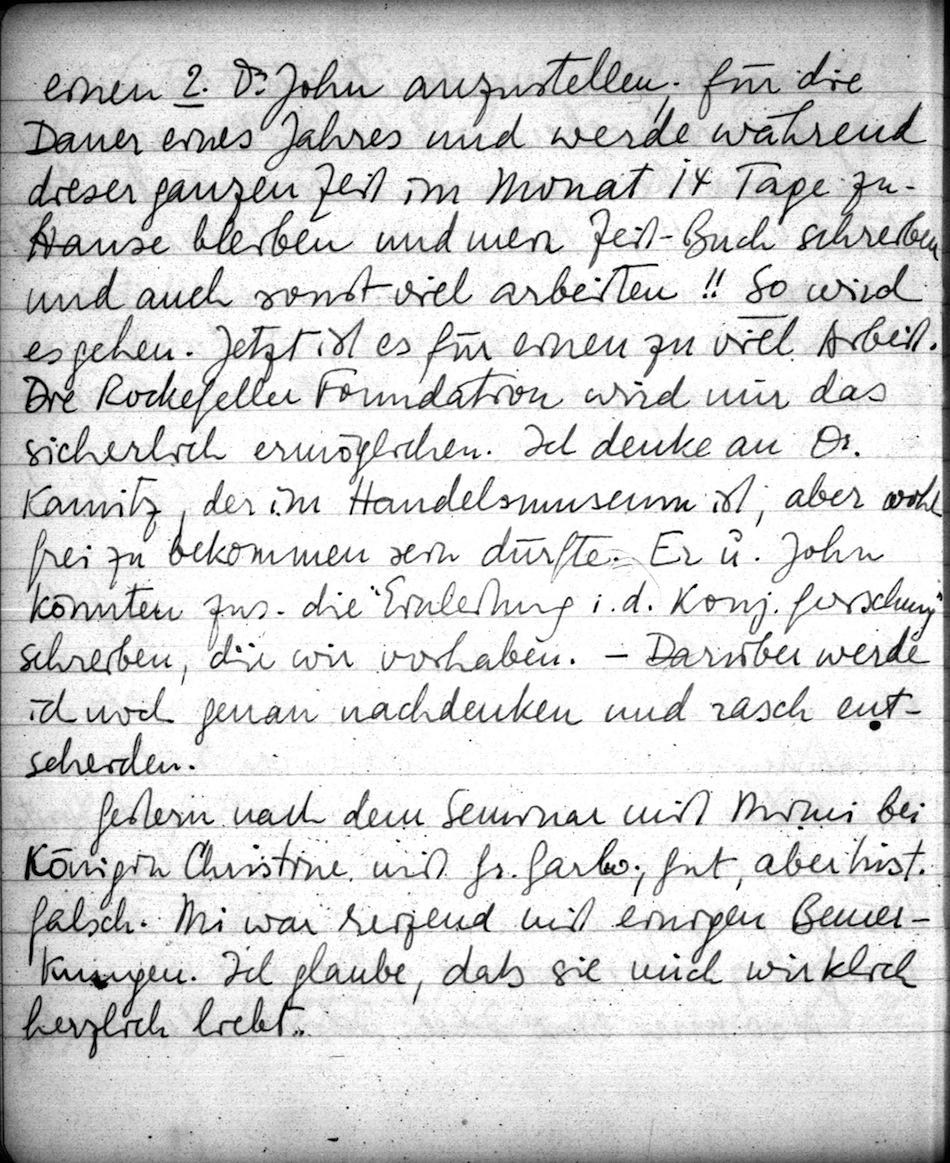 einen 2. Dr. John anzustellen, für die
Dauer eines Jahres und werde während
dieser ganzen Zeit im Monat 14 Tage zu-
Hause bleiben und mein Zeit-Buch schreiben
und auch sonst viel arbeiten !! So wird
es gehen. Jetzt ist es für einen zu viel Arbeit.
Die Rockefeller Foundation wird mir das
sicherlich ermöglichen. Ich denke an Dr.
Kamitz, der im Handelsmuseum ist, aber wohl
frei zu bekommen sein dürfte. Er u. John
könnten zus. die "Einleitung i. d. Konj. forschung"
schreiben, die wir vorhaben. – Darüber werde
ich noch genau nachdenken und rasch ent-
scheiden.
Gestern nach dem Seminar mit Mimi bei
Königin Christine mit Gr. Garbo; gut, aber hist.
falsch. Mi war reizend mit einigen Bemer-
kungen. Ich glaube, daß sie mich wirklich
herzlich liebt.